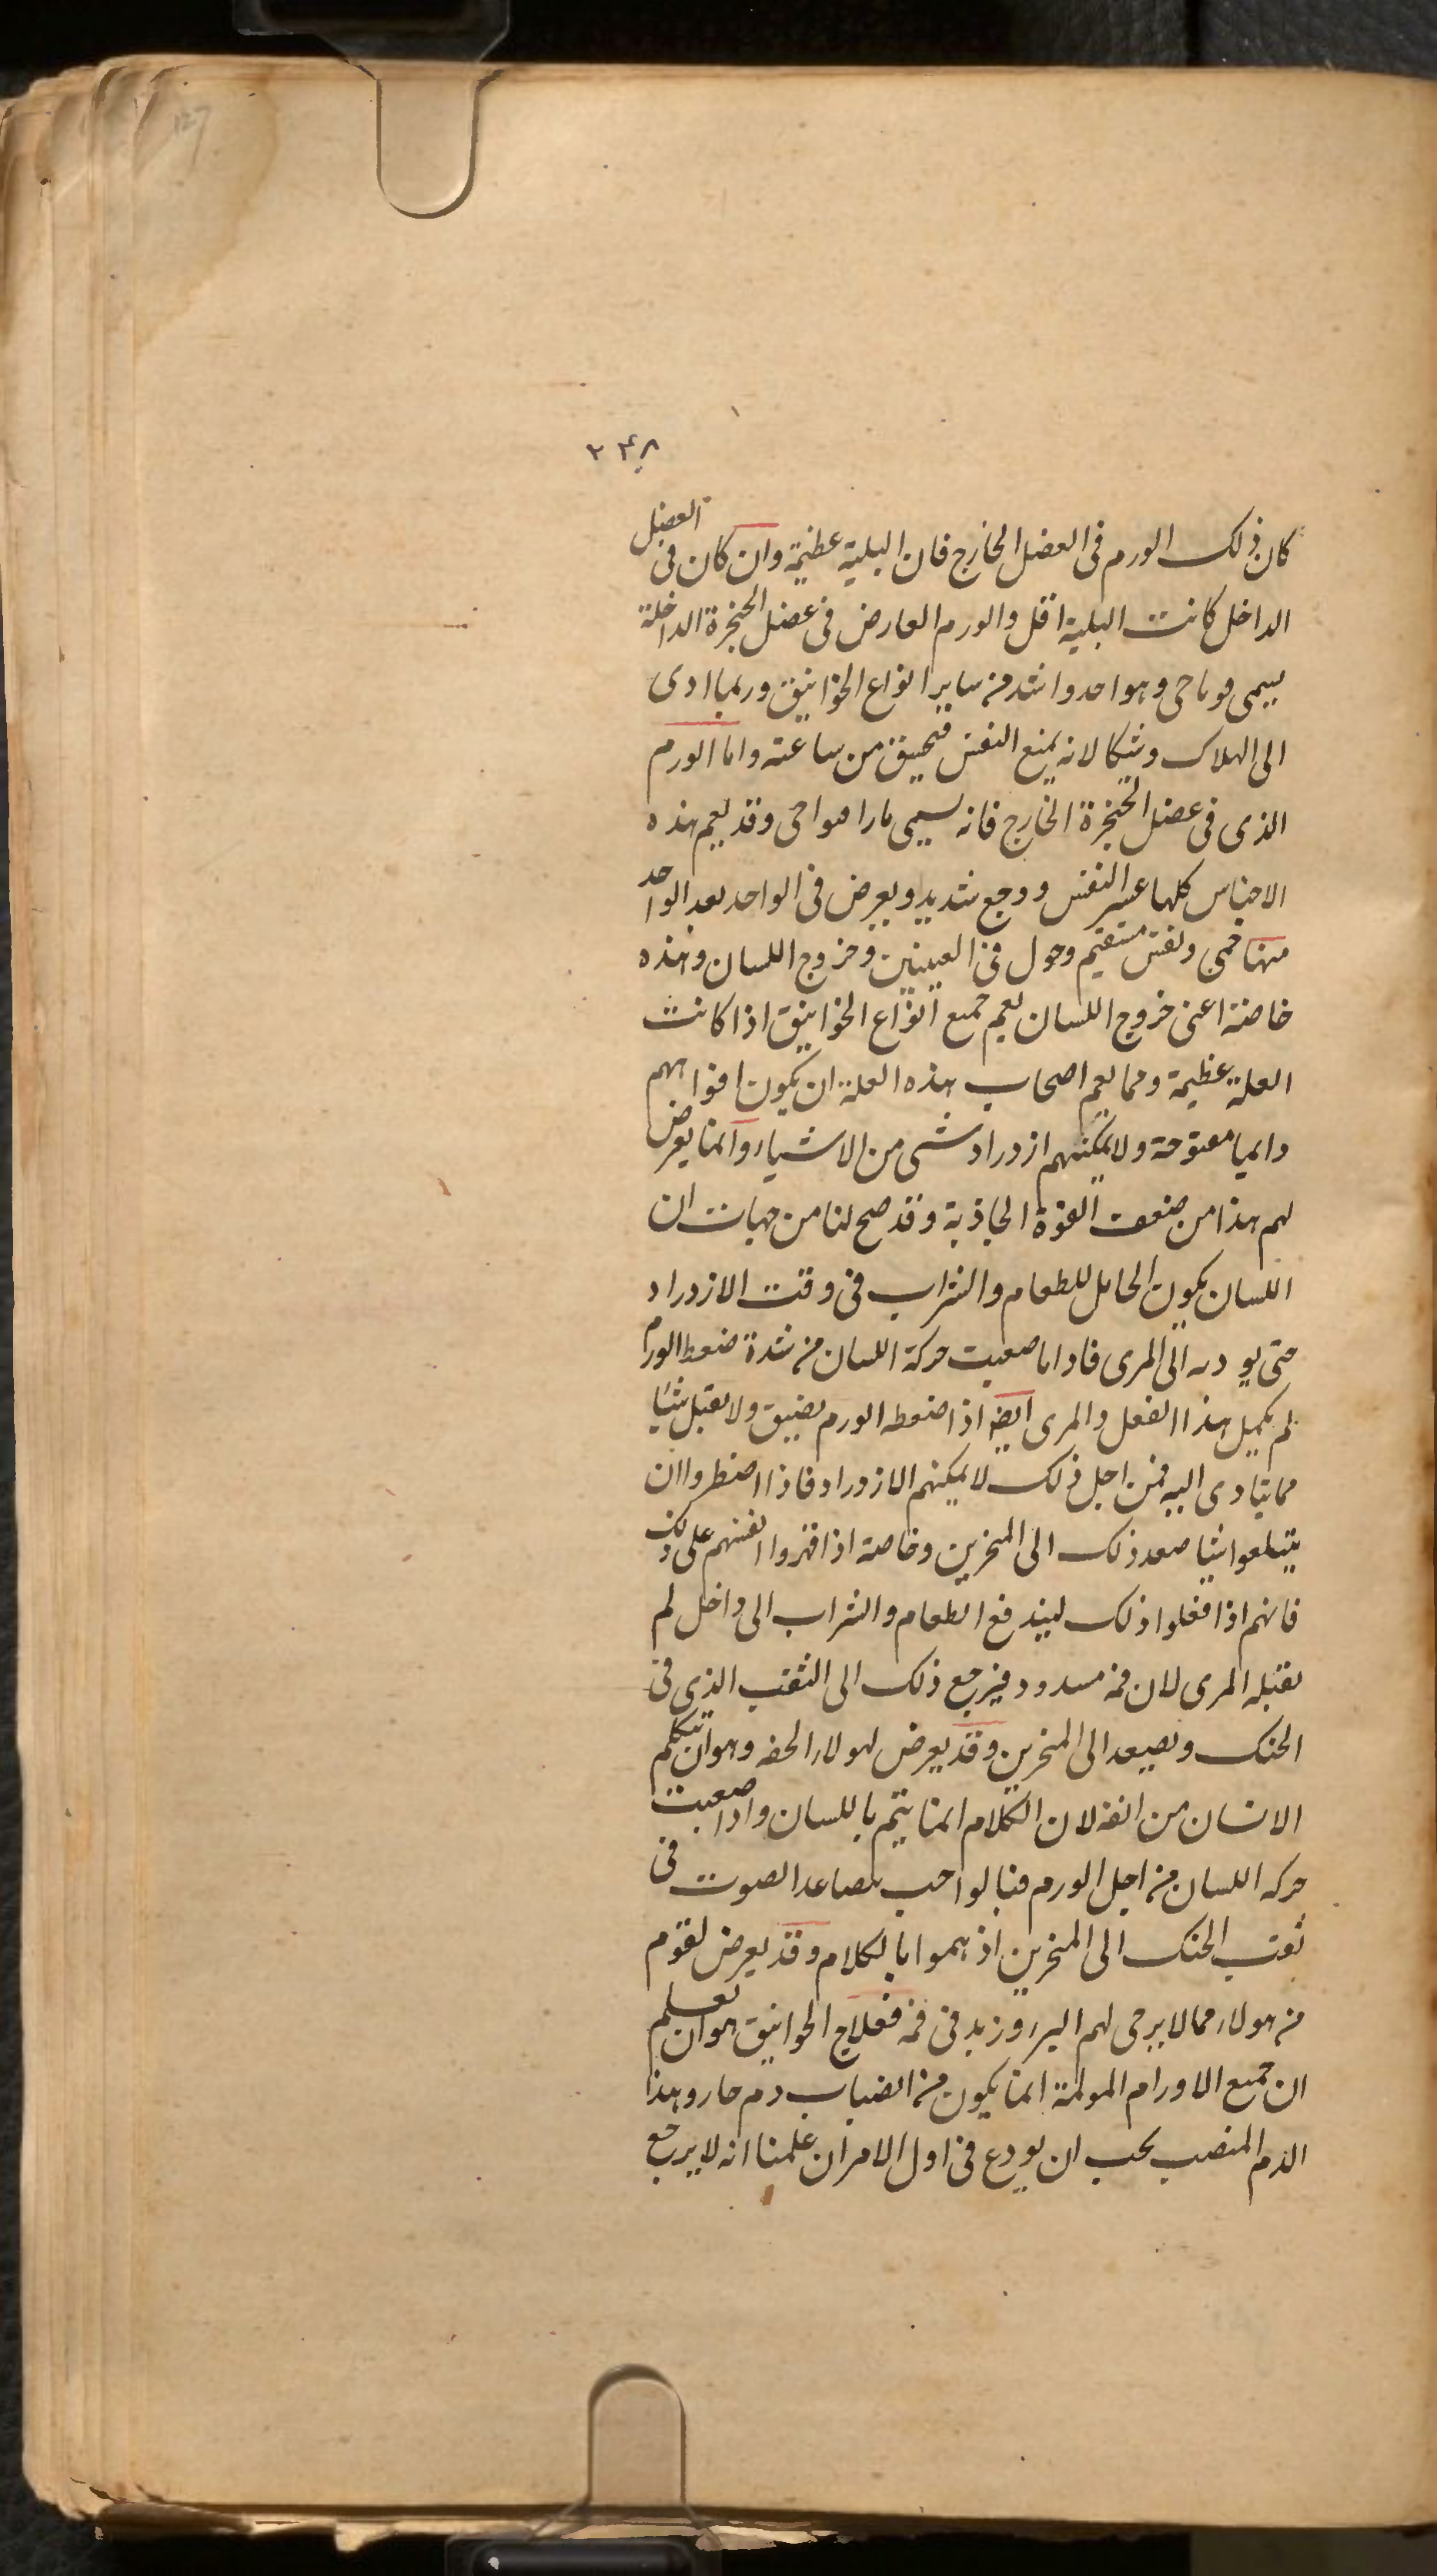 127
۲۴۸
كان ذلك الورم فى العضل الخارج فان البلية عظيمة وان كان فى العضل
الداخل كانت البلية اقل والورم العارض فى عضل الحنجرة الداخلة
يسمى وهو احد واشد من ساير انواع الخوانيق وربما ادى
الى الهلاك وشيكا لانه يمنع النفس من ساعته واما الورم
الذى فى عضل الحنجرة الخارج فانه يسمى وقد يعم هذه
الاجناس كلها عسر النفس ووجع شديد ويعرض فى الواحد بعد الواحد
منها حمى ونفس مستقيم وحول فى العينين وخروج اللسان وهذه
خاصة اعنى خروج اللسان يعم جميع انواع الخوانيق اذا كانت
العلة عظيمة ومما يعم اصحاب هذه العلة ان يكون افواههم
دايما مفتوحة ولا يمكنهم ازدراد شى من الاشياء وانما يعرض
لهم هذا من ضعف القوة الجاذبة وقد صح لنا من جهات ان
اللسان يكون الحامل للطعام والشراب فى وقت الازدراد
حتى يوديه الى المرى فاذا ما صعبت حركة اللسان من شدة ضغط الورم
لم يكمل هذا الفعل والمرى ايضا اذا ضغطه الورم يضيق ولا يقبل شيا
مما يتادى اليه فمن اجل ذلك لا يمكنهم الازدراد فاذا اضطروا ان
يبتلعوا شيا صعد ذلك الى المنخرين وخاصة اذا قهروا انفسهم على ذلك
فانهم اذا فعلوا ذلك ليندفع الطعام والشراب الى داخل لم
يقبله المرى لان فمه مسدود فيرجع ذلك الى الثقب الذى فى
الحنك ويصعد الى المنخرين وقد يعرض لهولاء وهو ان يتكلم
الانسان من انفه لان الكلام انما يتم باللسان واذا صعبت
حركه اللسان من اجل الورم فبالواجب تصاعد الصوت فى
ثقب الحنك الى المنخرين اذ هموا بالكلام وقد يعرض لقوم
من هولاء ممالا يرجى لهم البر زبد فى فمه فعلاج الخوانيق هو ان تعلم
ان جميع الاورام المولمة انما يكون من انصباب دم حار وهذا
الدم المنصب يجب ان يودع فى اول الامر ان علمنا انه لا يرجع